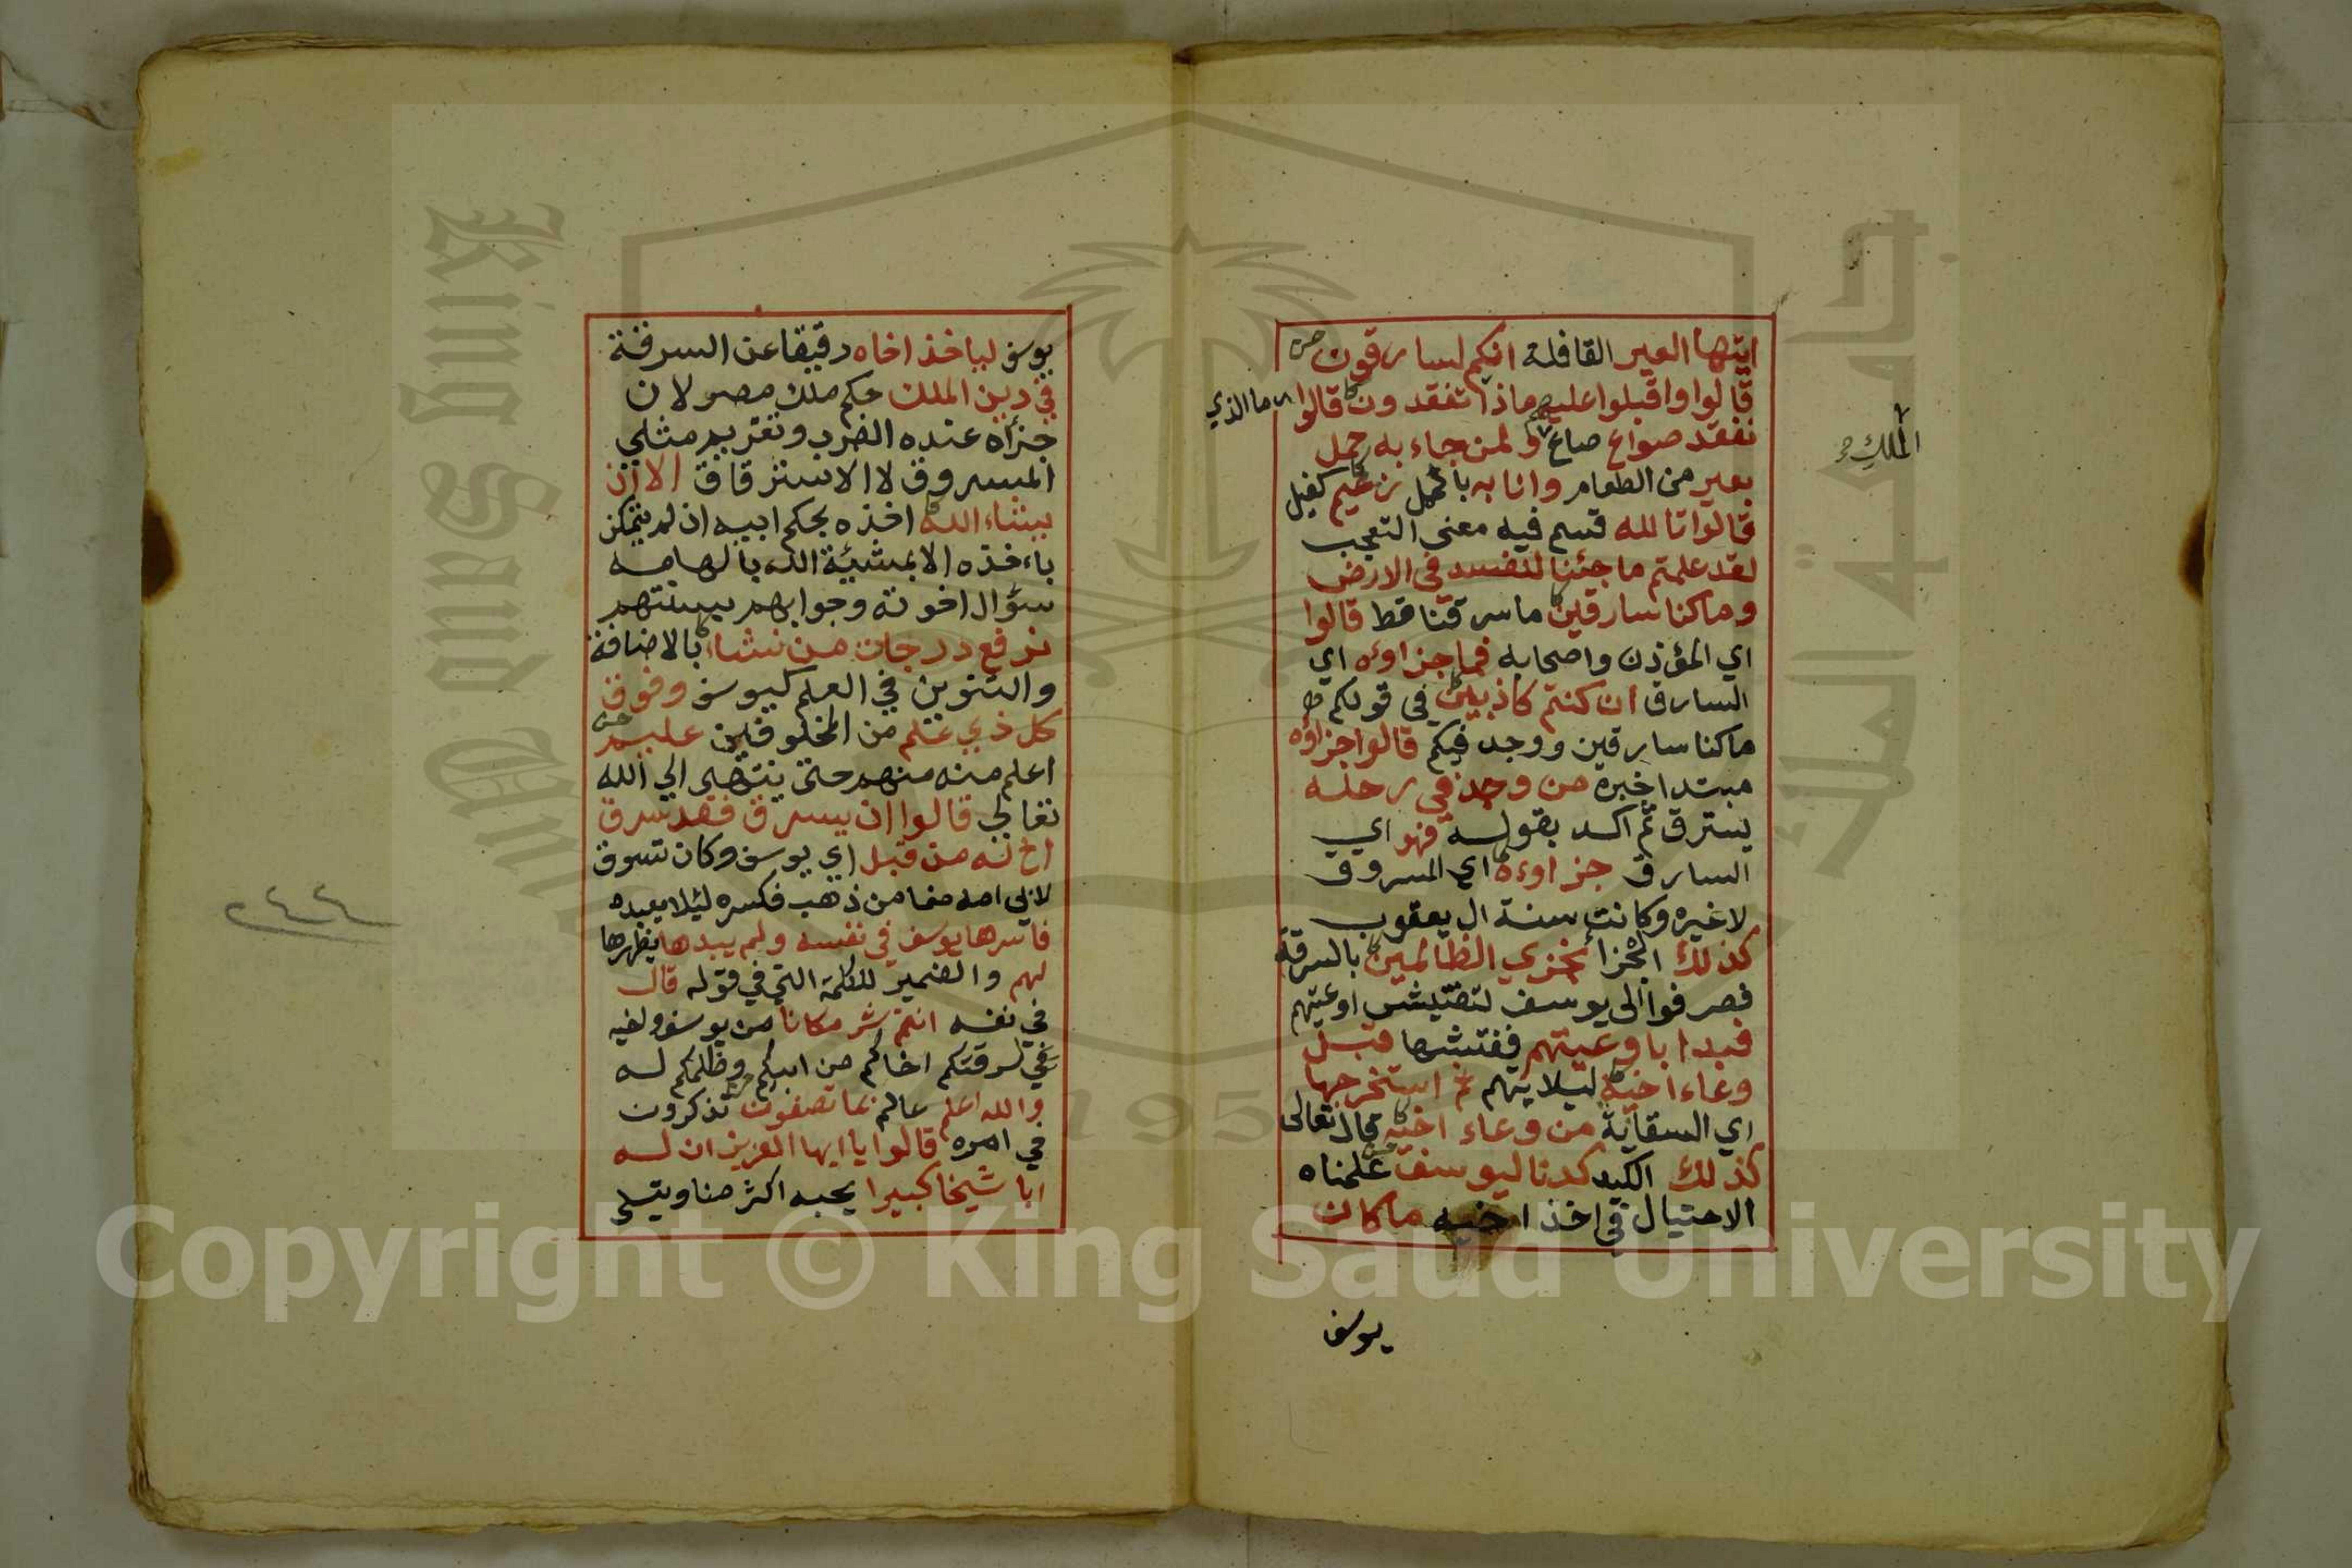 ايتها العير القافلة انكم لسارقون
قالوا واقبلوا عليهم ماذا تفقدون قالوا
ما الذي
نفقد صواع صاع ولمن جاء به حمل
الملك
بعير من الطعام وانا به بالحمل زعيم كفيل
قالوا تالله قسم فيه معنى التعجب
لقد علمتم ما جئنا لنفسد في الارض
وما كنا سارقين ما سرقنا قط قالوا
اي المؤذن واصحابه فما جزاوه اي
السارق ان كنتم كاذبين في قولكم
ما كنا سارقين ووجد فيكم قالوا جزاؤه
مبتدا خبره من وجد في رحله
يسترق ثم اكد بقوله فهو اي
السارق جزاوءه اي المسروق
لاغيره وكانت سنة ال يعقوب
كذلك الجزا نجزي الظالمين بالسرقة
فصرفوا الى يوسف لتفتيش اوعيتهم
فبدا باوعيتهم ففتشها قبل
وعاء اخيه ليلا يتهم ثم استخرجها
اي السقاية من وعاء اخيه قال تعالى
كذلك الكيد كدنا ليوسف علمناه
الاحتيال في اخذ اخيه ما كان
يوسف
يوسف لياخذ اخاه رقيقا عن السرقة
في دين الملك حكم ملك مصر لان
جزآه عنده الضرب وتغريم مثلي
المسروق لا الاسترقاق الا ان
يشاء الله اخذه بحكم ابيه ان لم يتمكن
باءخذه الا بمشيئة الله بالهامه
سؤال اخوته وجوابهم بسنتهم
نرفع درجات من نشاء بالاضافة
والتنوين في العلم كيوسف وفوق
كل ذي علم من المخلوقين عليم
اعلم منه منهم حتى ينتهى الي الله
تعالي قالوا ان يسرق فقد سرق
اخ له من قبل اي يوسف وكان سرق
لابي امه صنما من ذهب فكسره ليئلا يعبده
فاسرها يوسف في نفسه ولم يبدها يظهرها
لهم والضمير للكلمة التي في قوله قال
في نفسه انتم شر مكانا من يوسف واخيه
في لسرقتكم اخاكم من ابيكم وظلمكم له
والله اعلم عالم بما تصفون تذكرون
في امره قالوا يا ايها العزيز ان له
ابا شيخا كبيرا يحبه اكثر منا ويتسلى
٢٤٤
King Saud University
جامعة الملك
195
Copyright © King Saud University